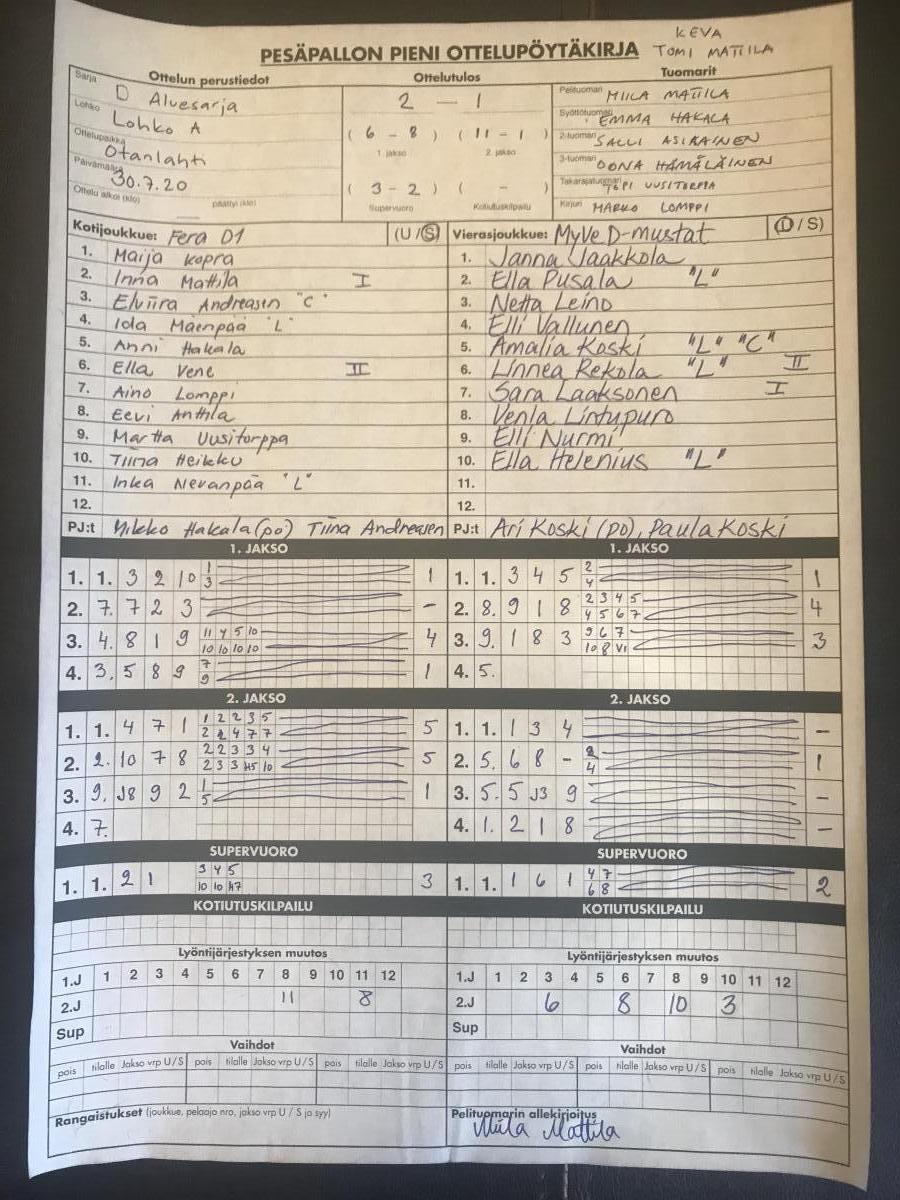 KEVA
PESÄPALLON PIENI OTTELUPÖYTÄKIRJA TOMI MATTILA
Ottelun perustiedot
Sarja D Aluesarja
Lohko Lohko A
Ottelupaikka Otanlahti
Päivämäärä 30.7.20
Ottelu alkoi (klo) päättyi (klo)
Ottelutulos
2 - 1
( 6 - 8 ) ( 11 - 1 )
1. jakso 2. jakso
( 3 - 2 ) ( - )
Supervuoro Kotiutuskilpailu
Tuomarit
Pelituomari MIILA MATTILA
Syöttötuomari EMMA HAKALA
2-tuomari SALLI ASIKAINEN
3-tuomari OONA HÄMÄLÄINEN
Takarajatuomari TOPI UUSITORPPA
Kirjuri MARKO LOMPPI
Kotijoukkue: Fera D1 (U/S)
1. Maija Kopra
2. Inna Mattila I
3. Elviira Andreasen "C"
4. Iida Mäenpää "L"
5. Anni Hakala
6. Ella Vene II
7. Aino Lomppi
8. Eevi Anttila
9. Martta Uusitorppa
10. Tiina Heikku
11. Inka Nevanpää "L"
12.
PJ:t Mikko Hakala (po) Tiina Andreasen
Vierasjoukkue: MyVe D-mustat (U/S)
1. Janna Jaakkola
2. Ella Pusala "L"
3. Netta Leino
4. Elli Vallunen
5. Amalia Koski "L" "C"
6. Linnea Rekola "L" II
7. Sara Laaksonen I
8. Venla Lintupuro
9. Elli Nurmi
10. Ella Helenius "L"
11.
12.
PJ:t Ari Koski (po), Paula Koski
1. JAKSO
1. 1. 3 2 10 1 1
3
2. 7. 7 2 3 -
3. 4. 8 1 9 11 4 5 10 4
10 10 10 10
4. 3. 5 8 9 7 1
9
1. JAKSO
1. 1. 3 4 5 2 1
4
2. 8. 9 1 8 2 3 4 5 4
4 5 6 7
3. 9. 1 8 3 9 6 7 3
10 8 V1
4. 5.
2. JAKSO
1. 1. 4 7 1 1 2 2 3 5 5
2 2 4 7 7
2. 2. 10 7 8 2 2 3 3 4 5
2 3 3 H5 10
3. 9. J8 9 2 1 1
5
4. 7.
2. JAKSO
1. 1. 1 3 4 -
2. 5. 6 8 - 2 1
4
3. 5. 5 J3 9 -
4. 1. 2 1 8 -
SUPERVUORO
1. 1. 2 1 3 4 5 3
10 10 H7
SUPERVUORO
1. 1. 1 6 1 4 7 2
6 8
KOTIUTUSKILPAILU
KOTIUTUSKILPAILU
Lyöntijärjestyksen muutos
1.J 1 2 3 4 5 6 7 8 9 10 11 12
2.J 11 8
Sup
Lyöntijärjestyksen muutos
1.J 1 2 3 4 5 6 7 8 9 10 11 12
2.J 6 8 10 3
Sup
Vaihdot
pois tilalle Jakso vrp U/S pois tilalle Jakso vrp U/S pois tilalle Jakso vrp U/S
Vaihdot
pois tilalle Jakso vrp U/S pois tilalle Jakso vrp U/S pois tilalle Jakso vrp U/S
Rangaistukset (joukkue, pelaaja nro, jakso vrp U / S ja syy)
Pelituomarin allekirjoitus
Miila Mattila